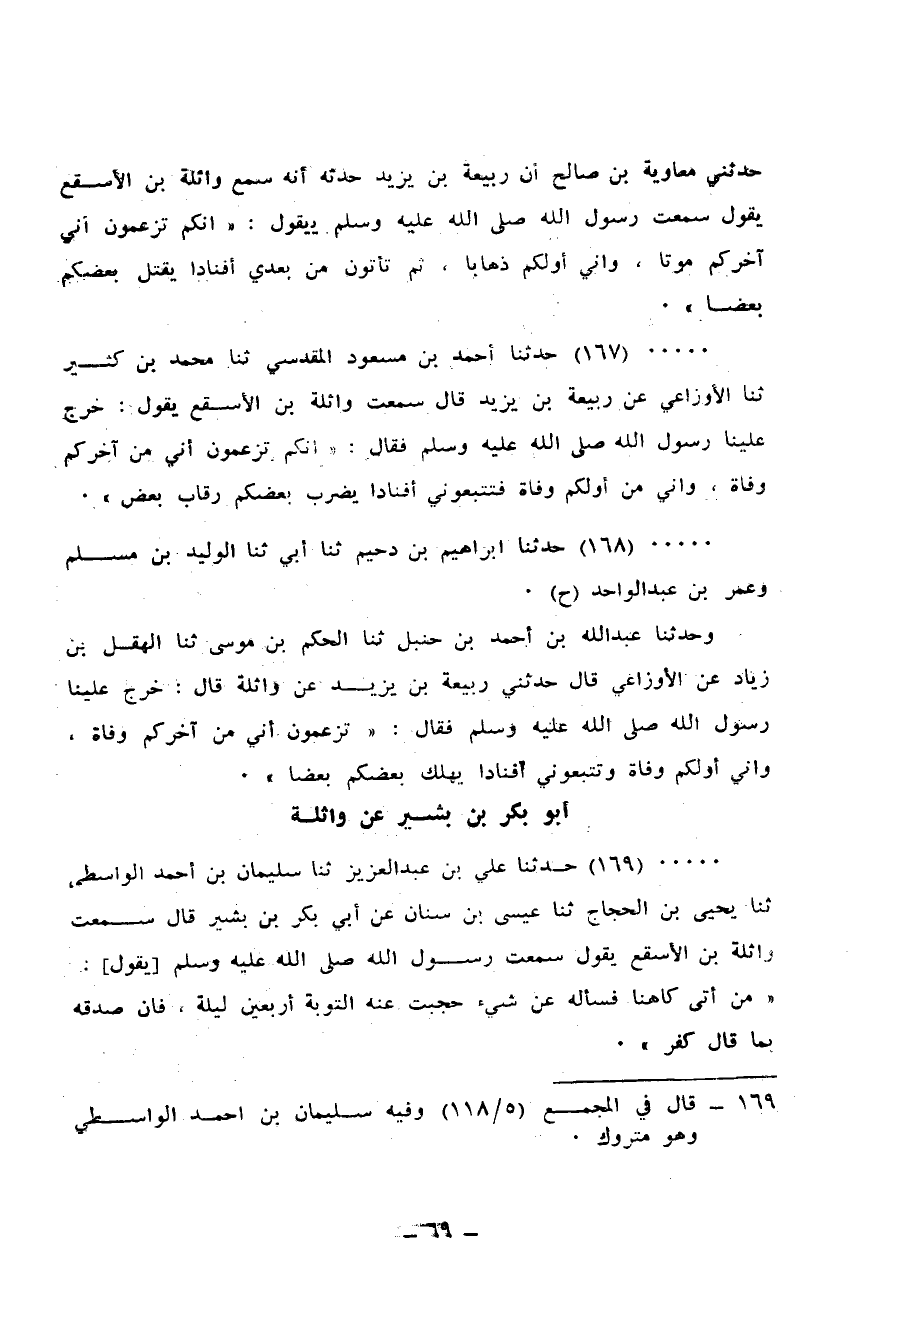 حدثني معاوية بن صالح أن ربيعة بن يزيد حدثه أنه سمع واثلة بن الأسقع
يقول سمعت رسول الله صلى الله عليه وسلم ييقول : « انكم تزعمون أني
آخركم موتا ، واني أولكم ذهابا ، ثم تأتون من بعدي أفنادا يقتل بعضكم
بعضا » ٠
٠٠٠٠٠ (١٦٧) حدثنا أحمد بن مسعود المقدسي ثنا محمد بن كثير
ثنا الأوزاعي عن ربيعة بن يزيد قال سمعت واثلة بن الأسقع يقول : خرج
علينا رسول الله صلى الله عليه وسلم فقال : « انكم تزعمون أني من آخركم
وفاة ، واني من أولكم وفاة فتتبعوني أفنادا يضرب بعضكم رقاب بعض » ٠
٠٠٠٠٠ (١٦٨) حدثنا ابراهيم بن دحيم ثنا أبي ثنا الوليد بن مسلم
وعمر بن عبدالواحد (ح) ٠
وحدثنا عبدالله بن أحمد بن حنبل ثنا الحكم بن موسى ثنا الهقل بن
زياد عن الأوزاعي قال حدثني ربيعة بن يزيد عن واثلة قال : خرج علينا
رسول الله صلى الله عليه وسلم فقال : « تزعمون أني من آخركم وفاة ،
واني أولكم وفاة وتتبعوني أفنادا يهلك بعضكم بعضا » ٠
أبو بكر بن بشير عن واثلة
٠٠٠٠٠ (١٦٩) حدثنا علي بن عبدالعزيز ثنا سليمان بن أحمد الواسطي
ثنا يحيى بن الحجاج ثنا عيسى بن سنان عن أبي بكر بن بشير قال سمعت
واثلة بن الأسقع يقول سمعت رسول الله صلى الله عليه وسلم [يقول] :
« من أتى كاهنا فسأله عن شيء حجبت عنه التوبة أربعين ليلة ، فان صدقه
بما قال كفر » ٠
١٦٩ – قال في المجمع (١١٨/٥) وفيه سليمان بن احمد الواسطي
وهو متروك ٠
– ٦٩ –